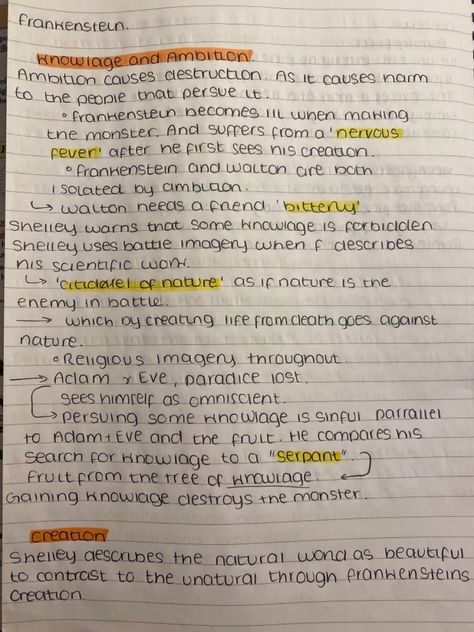 Frankenstein.
Knowlage and Ambition.
Ambition causes destruction. As it causes harm
to the people that persue it.
◦ Frankenstein becomes ill when making
the monster. And suffers from a 'nervous
fever' after he first sees his creation.
◦ Frankenstein and Walton are both
isolated by ambition.
↳ Walton needs a friend 'bitterly'.
Shelley warns that some knowlage is forbidden
Shelley uses battle imagery when F describes
his scientific work.
↳ 'citidalel of nature' as if nature is the
enemy in battle.
→ which by creating life from death goes against
nature.
◦ Religious imagery throughout.
→ Adam & Eve, paradice lost.
sees himself as omniscient.
→ Persuing some knowlage is sinful parrallel
to Adam + Eve and the fruit. He compares his
search for knowlage to a "serpant".
fruit from the tree of knowlage.
Gaining knowlage destroys the monster.
Creation
Shelley describes the natural world as beautiful
to contrast to the unatural through Frankensteins
creation.